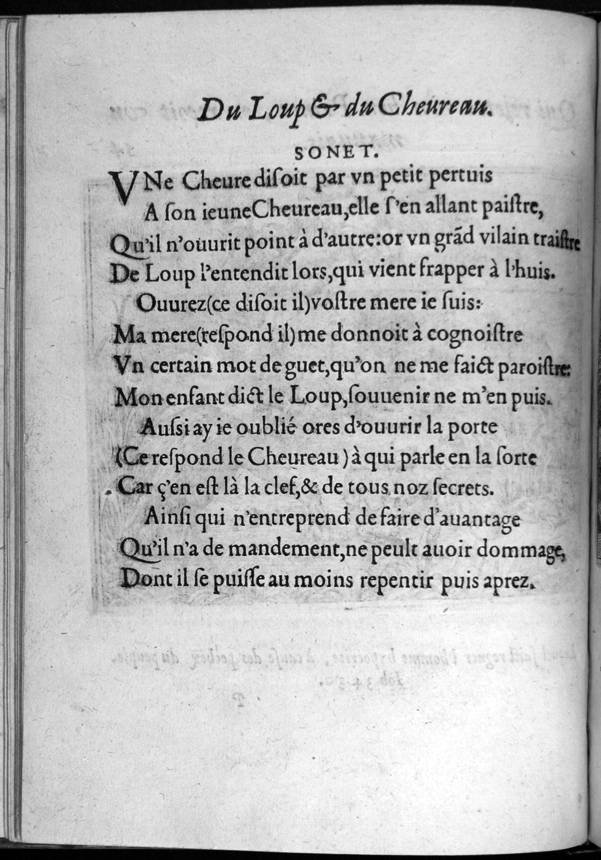 Du Loup & du Cheureau.
SONET.
VNe Cheure diſoit par vn petit pertuis
A ſon ieune Cheureau, elle ſ'en allant paiſtre,
Qu'il n'ouurit point à d'autre: or vn grãd vilain traiſtre
De Loup l'entendit lors, qui vient frapper à l'huis.
Ouurez (ce diſoit il) voſtre mere ie ſuis:
Ma mere (reſpond il) me donnoit à cognoiſtre
Vn certain mot de guet, qu'on ne me faict paroiſtre:
Mon enfant dict le Loup, ſouuenir ne m'en puis.
Auſsi ay ie oublié ores d'ouurir la porte
(Ce reſpond le Cheureau) à qui parle en la ſorte
Car ç'en eſt là la clef, & de tous noz ſecrets.
Ainſi qui n'entreprend de faire d'auantage
Qu'il n'a de mandement, ne peult auoir dommage,
Dont il ſe puiſſe au moins repentir puis aprez.